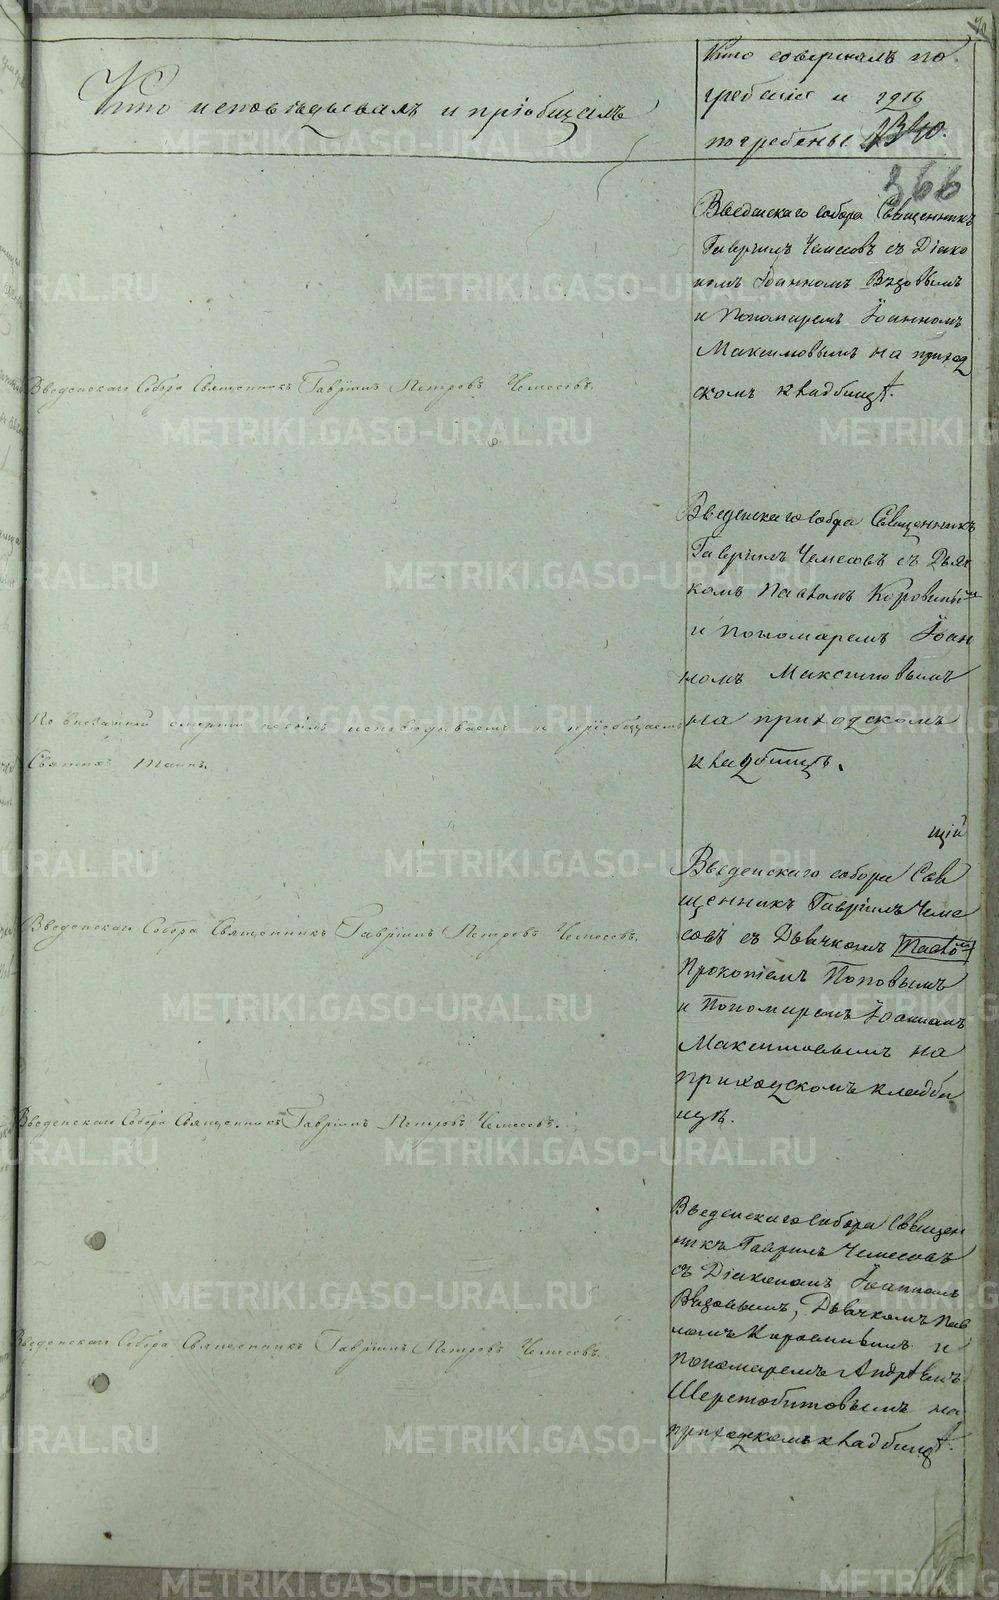 Кто исповѣдывалъ и пріобщалъ
Кто совершалъ по
гребеніе и гдѣ
погребены
366
Введенскаго Собора Священникъ
Гавріилъ Чемесовъ съ Діако
номъ Іоанномъ
и Пономаремъ Іоанномъ
Максимовымъ на приход
скомъ кладбищѣ.
Введенскаго Собора Священникъ Гавріилъ Петровъ Чемесовъ.
Введенскаго Собора Священникъ
Гавріилъ Чемесовъ съ Дьяч
комъ Павломъ Коровинымъ
и Пономаремъ Іоан
номъ Максимовымъ
на приходскомъ
кладбищѣ.
По внезапной смерти небылъ исповѣдываемъ и пріобщаемъ
Святыхъ Таинъ.
щій
Введенскаго собора Свя
щенникъ Гавріилъ Чеме
совъ съ Дьячкомъ Павломъ
Прокопіемъ Поповымъ
и Пономаремъ Іоанномъ
Максимовымъ на
приходскомъ кладби
щѣ.
Введенскаго Собора Священникъ Гавріилъ Петровъ Чемесовъ.
Введенскаго Собора Священникъ Гавріилъ Петровъ Чемесовъ.
Введенскаго Собора Священ
никъ Гавріилъ Чемесовъ
съ Діакономъ Іоанномъ
Дьячкомъ Пав
ломъ Коровинымъ и
пономаремъ Андрѣемъ
Шерстобитовымъ на
приходскомъ кладбищѣ.
Введенскаго Собора Священникъ Гавріилъ Петровъ Чемесовъ.
METRIKI.GASO-URAL.RU